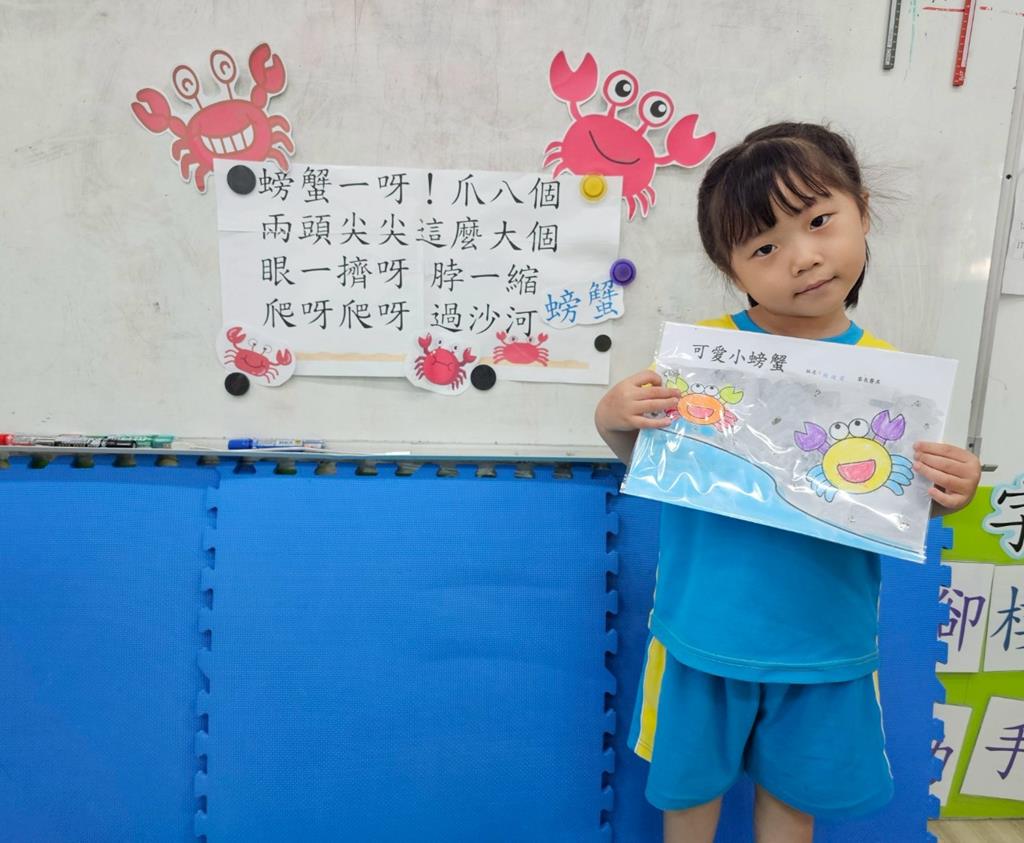 螃蟹一呀！爪八個
兩頭尖尖這麼大個
眼一擠呀 脖一縮
爬呀爬呀 過沙河
螃蟹
可愛小螃蟹
手